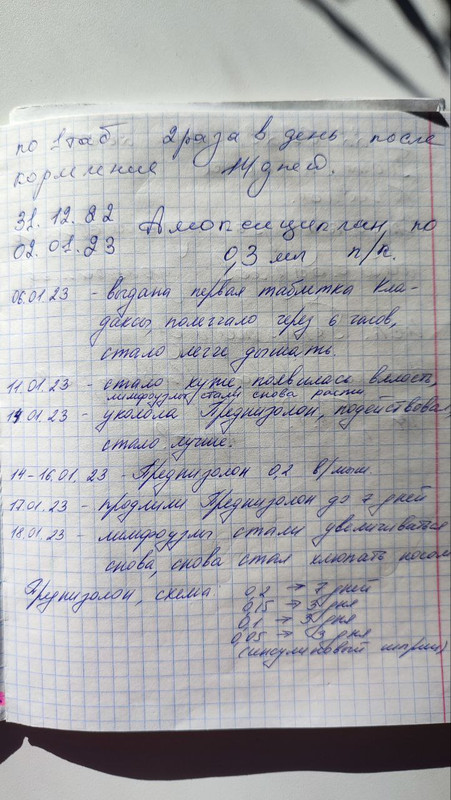 по 1 таб 2 раза в день после
кормления 14 дней.
31.12.22 Амоксициллин, по
02.01.23 0,3 мл п/к.
06.01.23 - выдана первая таблетка Кла-
дакса, полегчало через 6 часов,
стало легче дышать.
11.01.23 - стало хуже, появилась вялость,
лимфоузлы стали снова расти
14.01.23 - уколола Преднизолон, подействовал,
стало лучше.
14-16.01.23 - Преднизолон 0,2 в/мыш.
17.01.23 - продлили Преднизолон до 7 дней
18.01.23 - лимфоузлы стали увеличиваться
снова, снова стал хлюпать носом
Преднизолон, схема 0,2 → 7 дней
0,15 → 3 дня
0,1 → 3 дня
0,05 → 3 дня
(инсулиновый шприц)